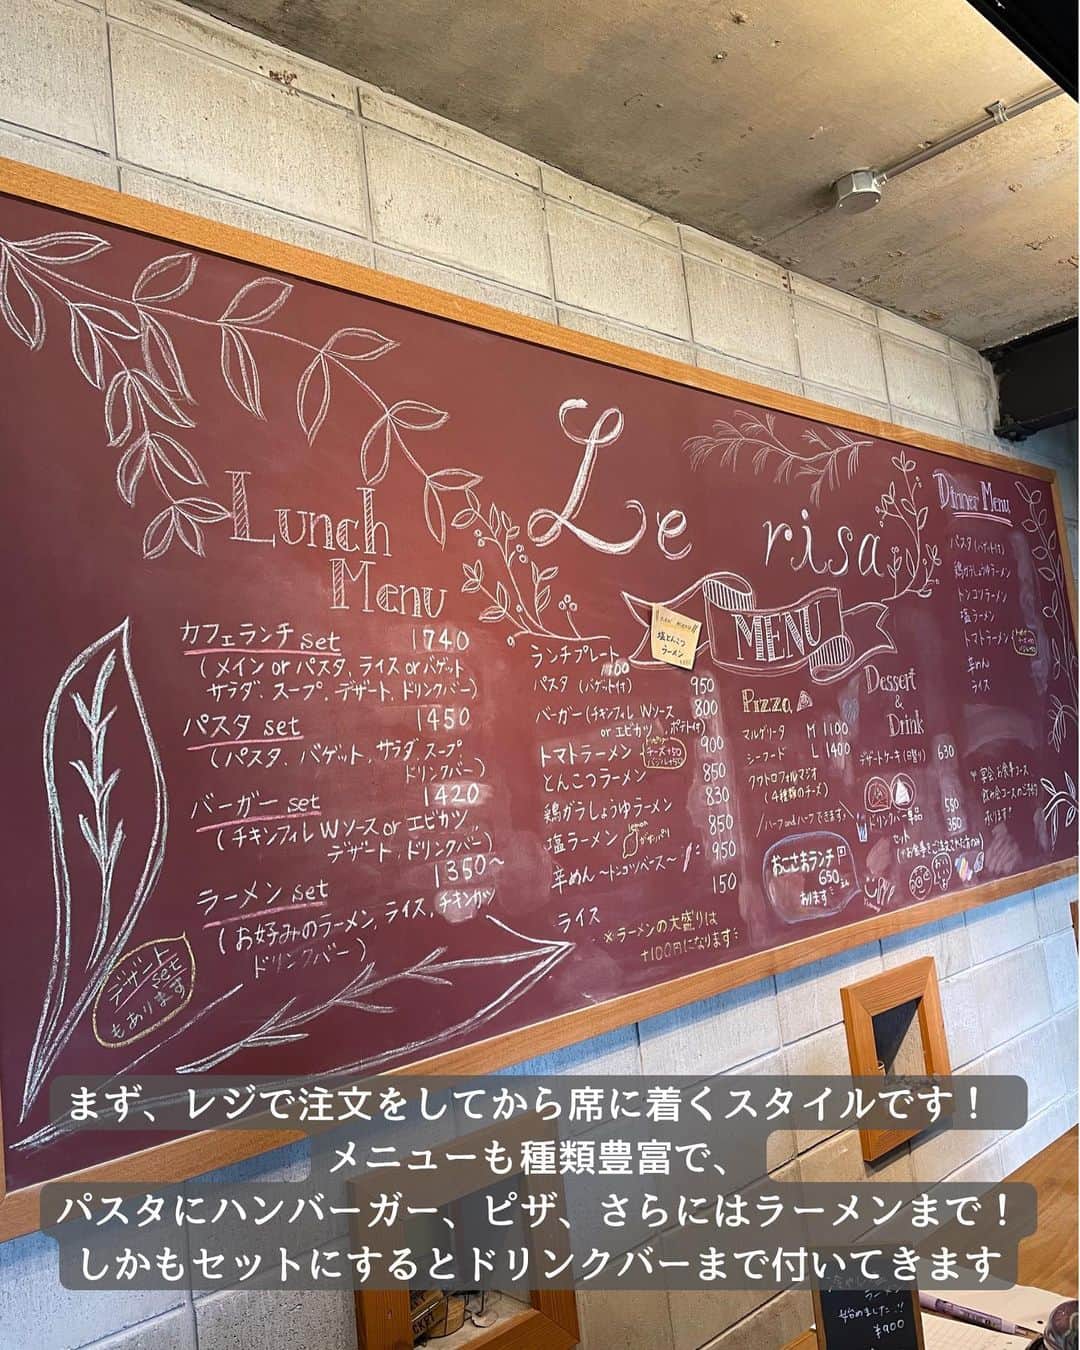 Le risa
Lunch
Menu
カフェランチ set 1740
(メイン or パスタ、ライス or バゲット
サラダ、スープ、デザート、ドリンクバー)
パスタ set 1450
(パスタ、バゲット、サラダ、スープ
ドリンクバー)
バーガー set 1420
(チキンフィレWソース or エビカツ
デザート、ドリンクバー)
ラーメン set 1350〜
(お好みのラーメン、ライス、チキンカツ
ドリンクバー)
デザート
set
もあります
MENU
塩とんこつ
ラーメン
ランチプレート 1100
パスタ (バゲット付) 950
バーガー (チキンフィレ Wソース 800
or エビカツ ポテト付)
トマトラーメン 900
チーズ+50
とんこつラーメン 850
鶏ガラしょうゆラーメン 830
塩ラーメン 850
lemon
辛めん 〜トンコツベース〜 950
ライス 150
※ラーメンの大盛りは
+100円になります
Pizza
マルゲリータ M 1100
シーフード L 1400
クワトロフォルマジオ
(4種類のチーズ)
ハーフandハーフできます
おこさまランチ
650
あります
Dessert
&
Drink
デザートケーキ(日替り) 630
ドリンクバー単品 550
セット 350
Dinner Menu
パスタ(バゲット付)
鶏ガラしょうゆラーメン
トンコツラーメン
塩ラーメン
トマトラーメン
辛めん
ライス
まず、レジで注文をしてから席に着くスタイルです！
メニューも種類豊富で、
パスタにハンバーガー、ピザ、さらにはラーメンまで！
しかもセットにするとドリンクバーまで付いてきます
ラーメン
始めました!!
¥900